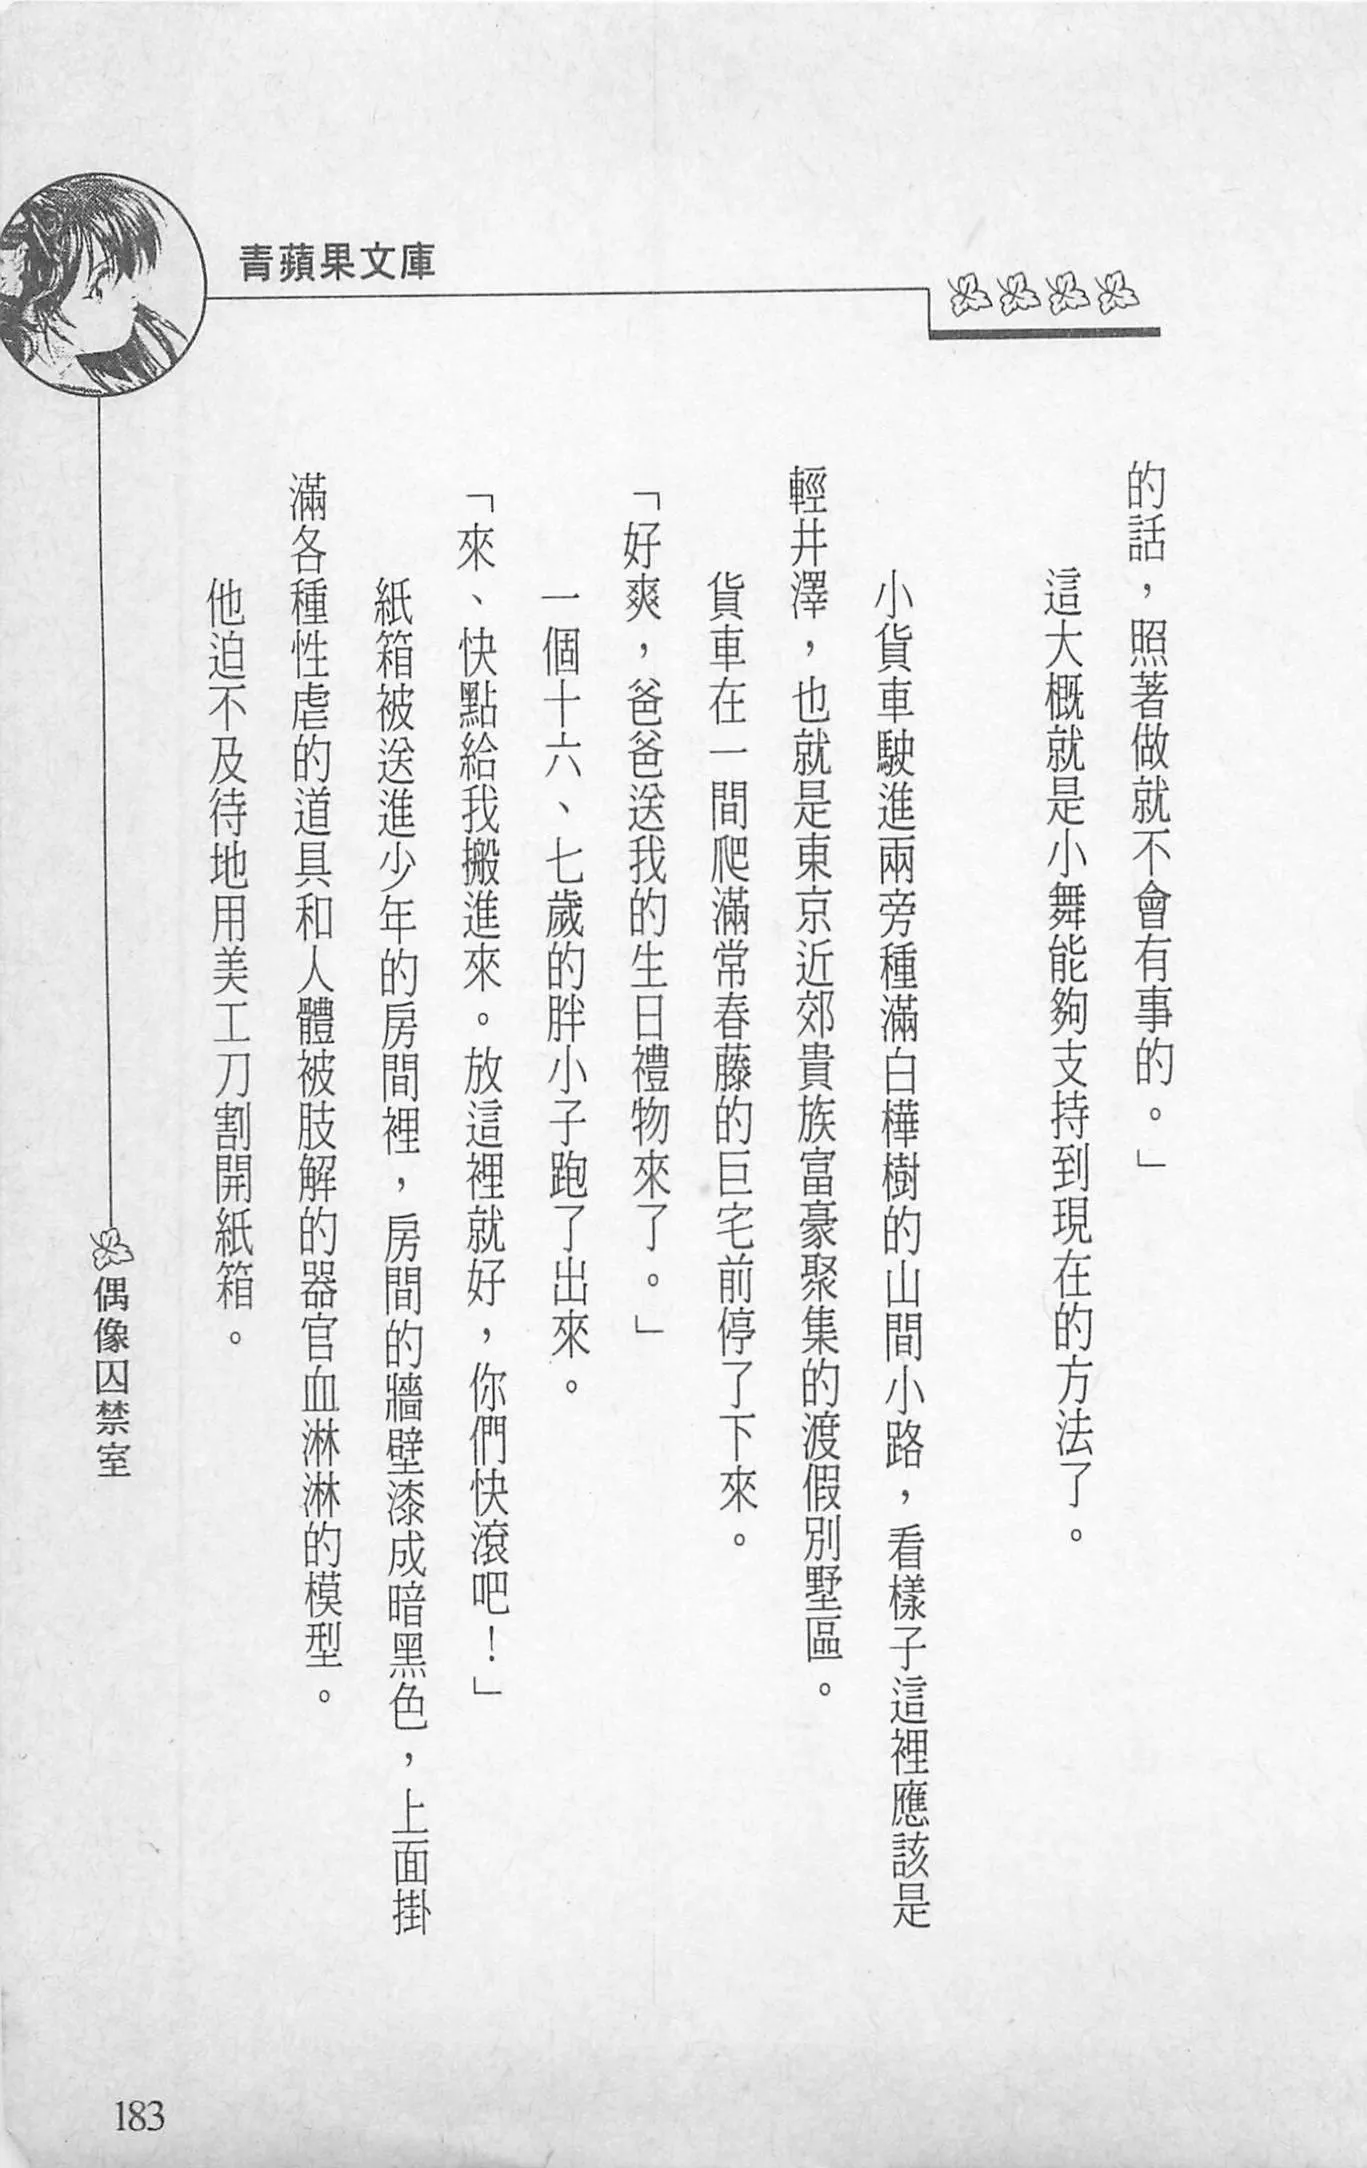 青蘋果文庫
的話，照著做就不會有事的。」
這大概就是小舞能夠支持到現在的方法了。
小貨車駛進兩旁種滿白樺樹的山間小路，看樣子這裡應該是
輕井澤，也就是東京近郊貴族富豪聚集的渡假別墅區。
貨車在一間爬滿常春藤的巨宅前停了下來。
「好爽，爸爸送我的生日禮物來了。」
一個十六、七歲的胖小子跑了出來。
「來、快點給我搬進來。放這裡就好，你們快滾吧！」
紙箱被送進少年的房間裡，房間的牆壁漆成暗黑色，上面掛
滿各種性虐的道具和人體被肢解的器官血淋淋的模型。
他迫不及待地用美工刀割開紙箱。
偶像囚禁室
183